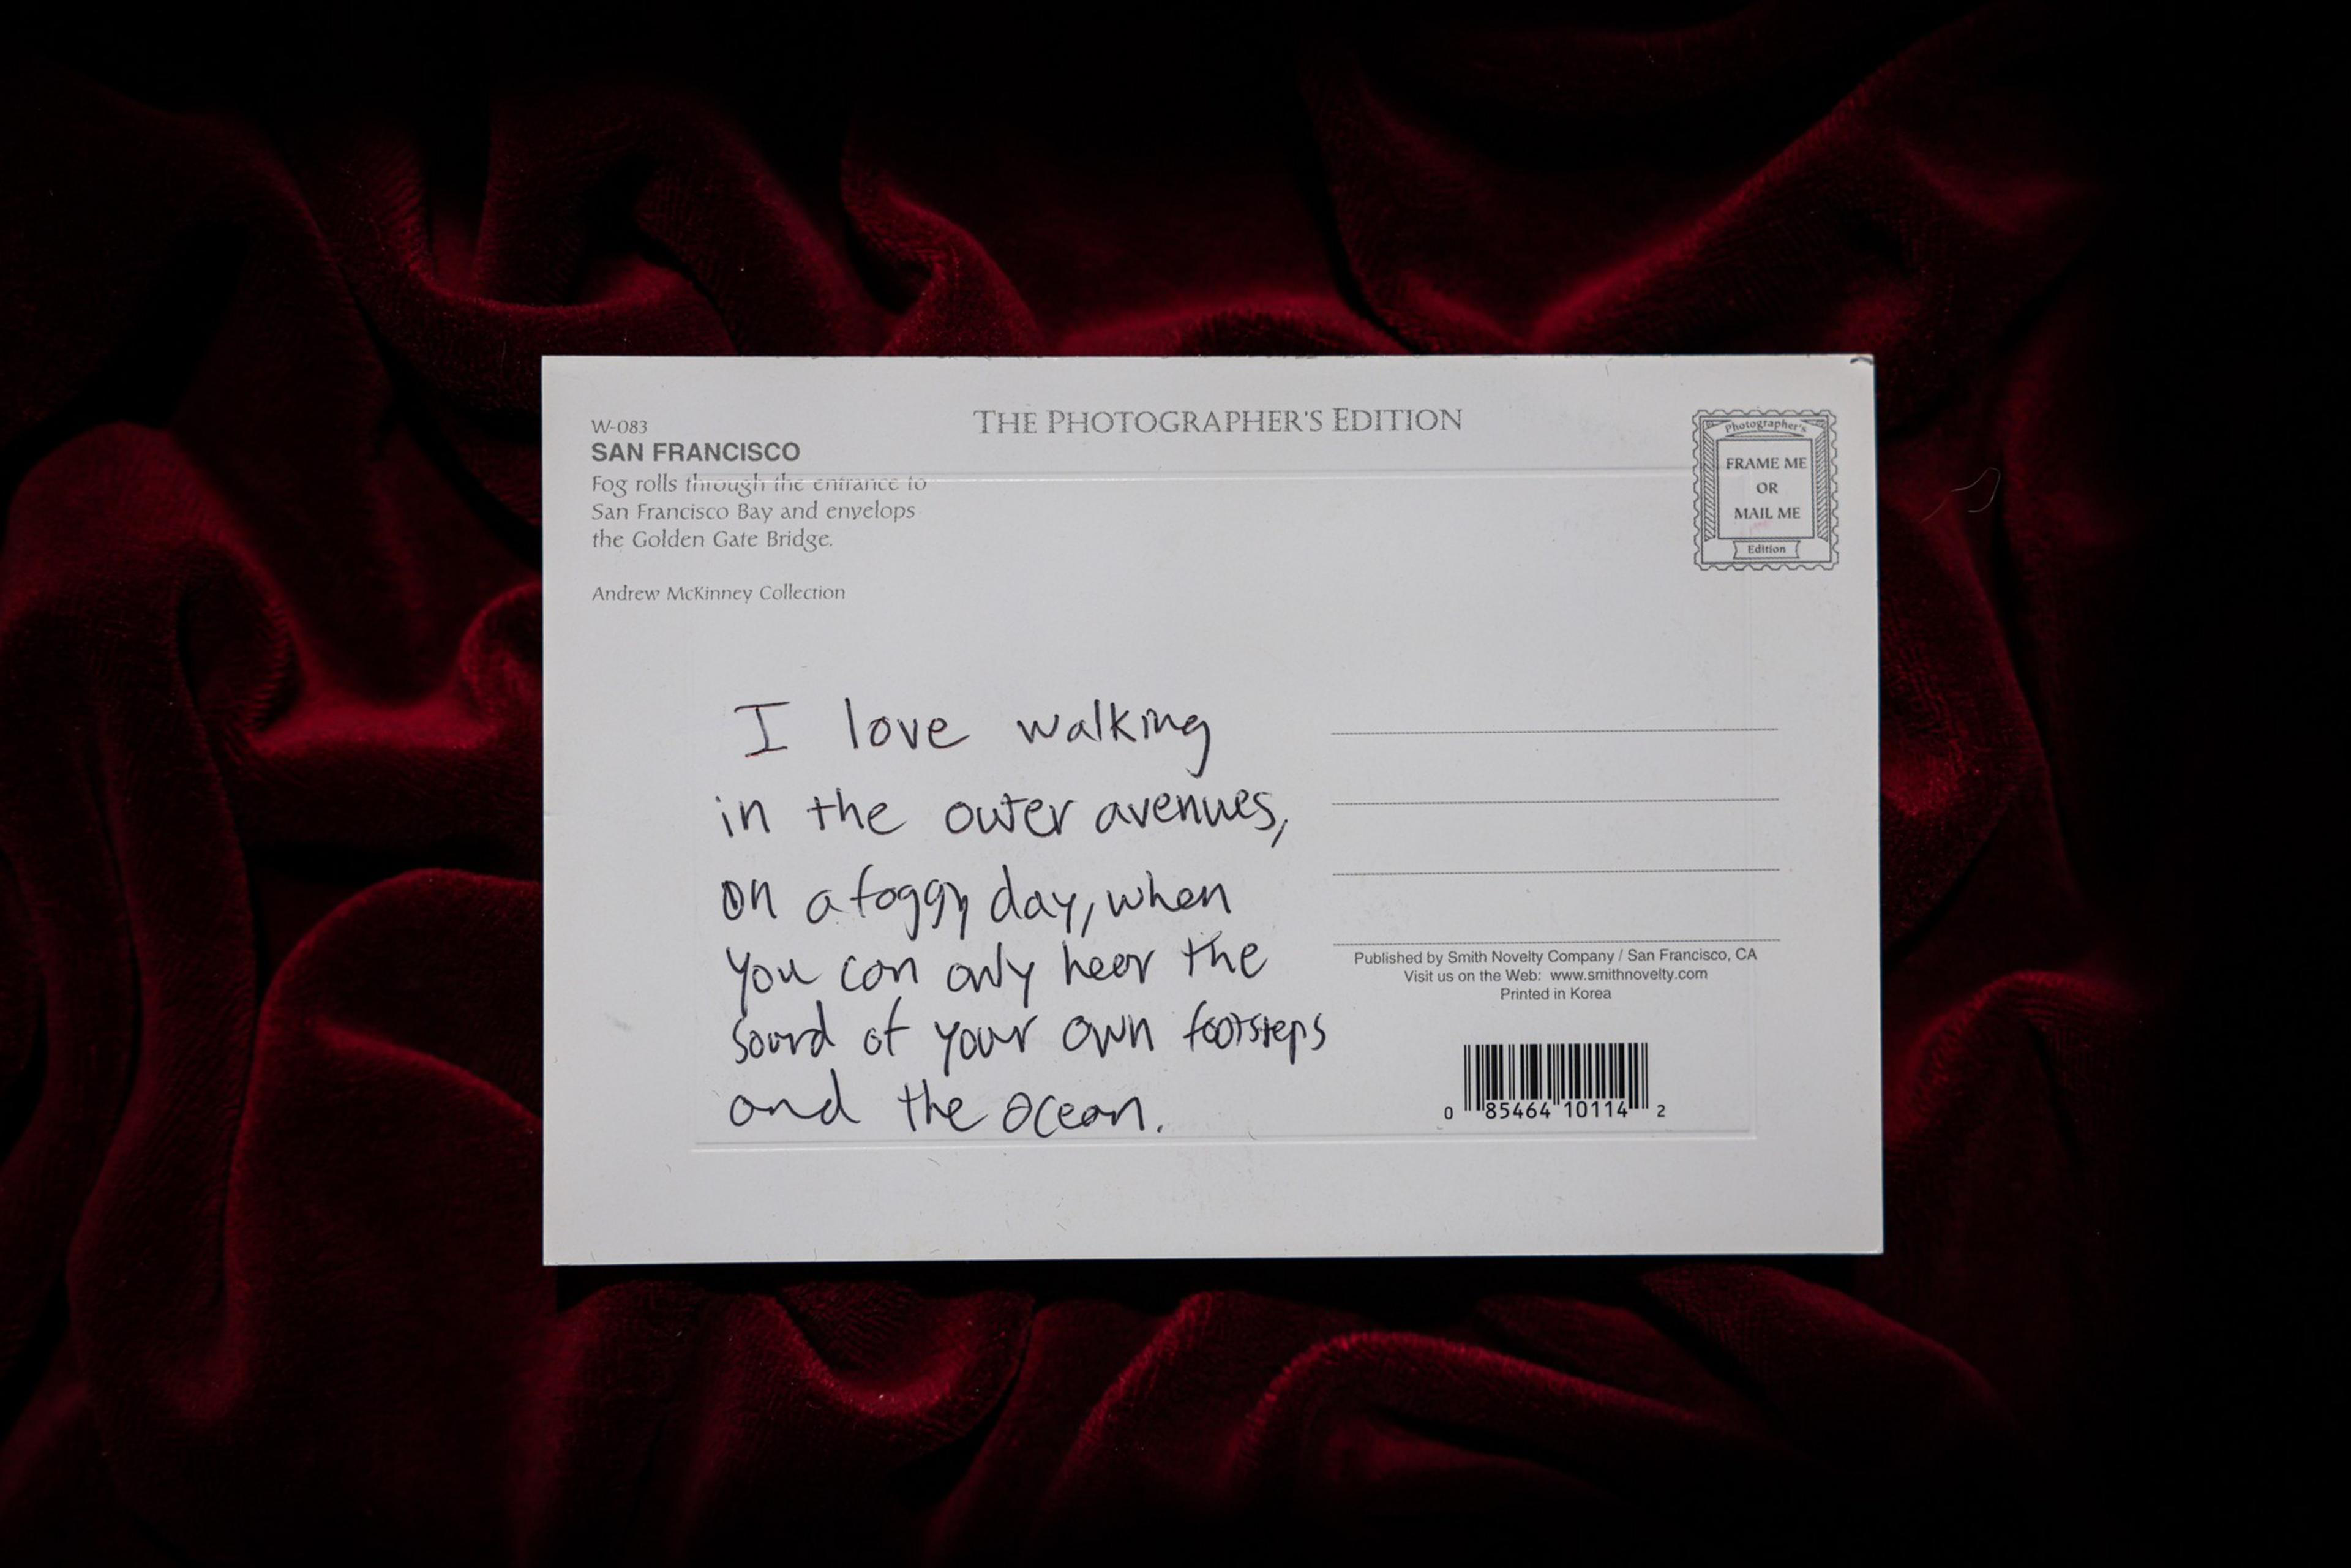 W-083
SAN FRANCISCO
Fog rolls through the entrance to
San Francisco Bay and envelops
the Golden Gate Bridge.
Andrew McKinney Collection
THE PHOTOGRAPHER'S EDITION
Photographer's
FRAME ME
OR
MAIL ME
Edition
I love walking
in the outer avenues,
on a foggy day, when
you can only hear the
sound of your own footsteps
and the ocean.
Published by Smith Novelty Company / San Francisco, CA
Visit us on the Web: www.smithnovelty.com
Printed in Korea
0 85464 10114 2